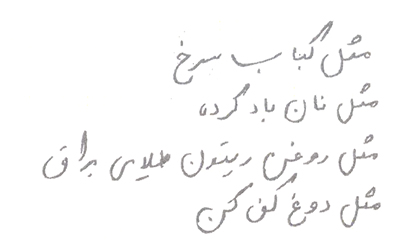 مثل کباب سرخ
مثل نان باد کرده
مثل روغن زیتون طلای براق
مثل دوغ کف کن